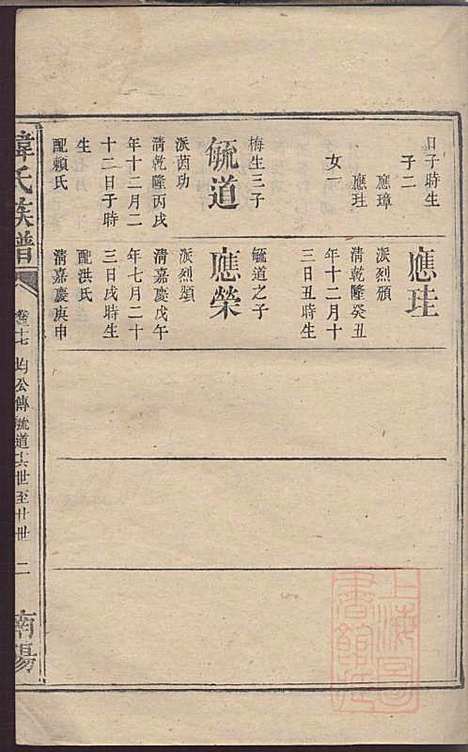 日子時生
子二
應璋
應珪
女一
毓道
梅生三子
派茵功
清乾隆丙戌
年十二月二
十二日子時
生
配賴氏
應珪
派烈頒
清乾隆癸丑
年十二月十
三日丑時生
應榮
毓道之子
派烈頒
清嘉慶戊午
年七月二十
三日戌時生
配洪氏
清嘉慶庚申
韋氏族譜
卷十七
均公傳毓道十六世至廿世
二
南陽
上海圖
書館藏